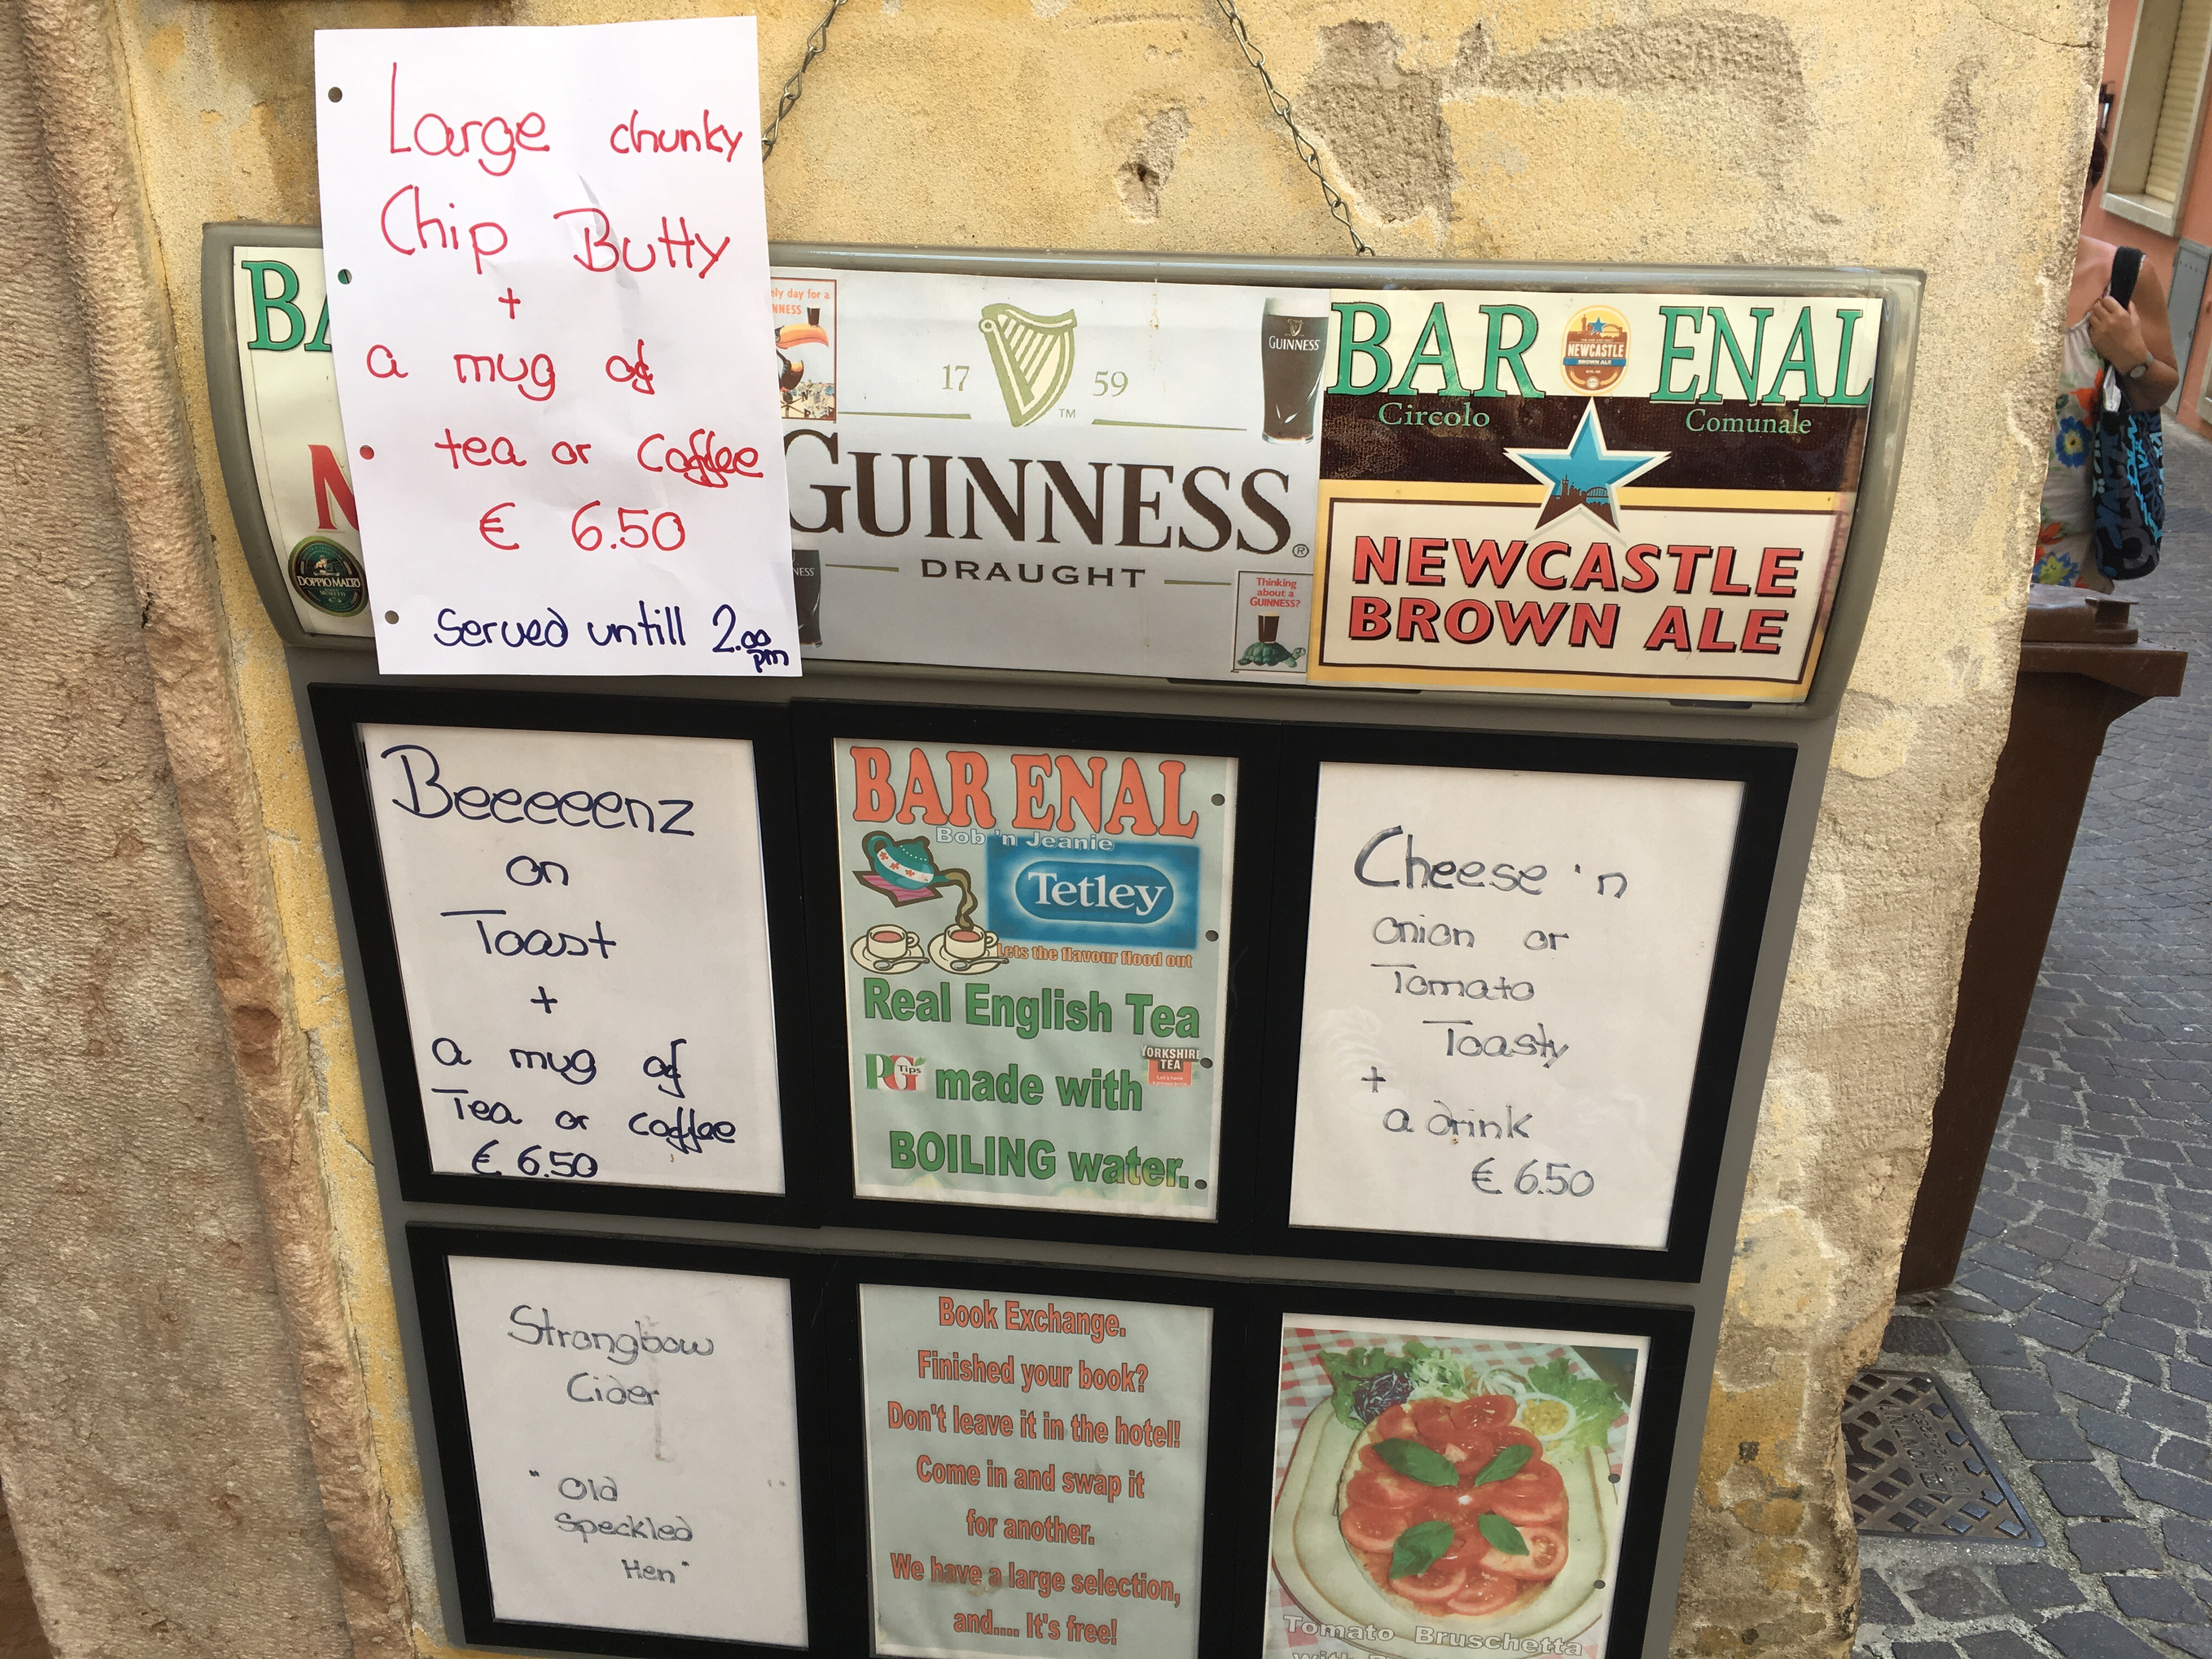 Large chunky
Chip Butty
+
a mug of
tea or coffee
€ 6.50
Served untill 2.00 pm
DOPPIO MALTO
17 59
GUINNESS
DRAUGHT
GUINNESS
Thinking
about a
GUINNESS?
BAR ENAL
NEWCASTLE
BROWN ALE
Circolo Comunale
NEWCASTLE
BROWN ALE
Beeeeenz
on
Toast
+
a mug of
Tea or coffee
€ 6.50
BAR ENAL
Bob 'n Jeanie
Tetley
Lets the flavour flood out
Real English Tea
PG Tips made with YORKSHIRE TEA
BOILING water..
Cheese 'n
onion or
Tomato
Toasty
+
a drink
€ 6.50
Strongbow
Cider
"Old
Speckled
Hen"
Book Exchange.
Finished your book?
Don't leave it in the hotel!
Come in and swap it
for another.
We have a large selection,
and.... It's free!
Tomato Bruschetta